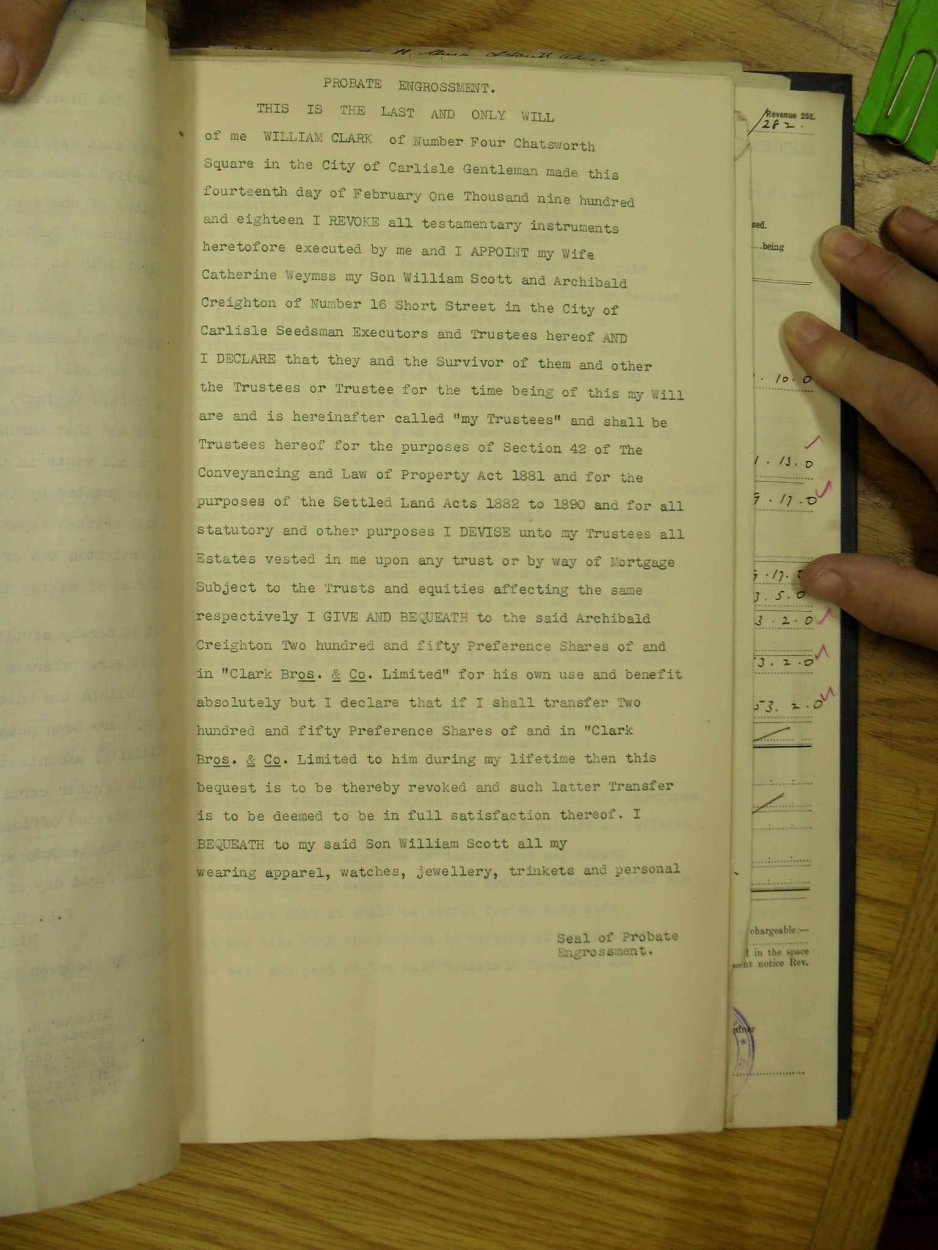 PROBATE ENGROSSMENT.
THIS IS THE LAST AND ONLY WILL
of me WILLIAM CLARK of Number Four Chatsworth
Square in the City of Carlisle Gentleman made this
fourteenth day of February One Thousand nine hundred
and eighteen I REVOKE all testamentary instruments
heretofore executed by me and I APPOINT my Wife
Catherine Weymss my Son William Scott and Archibald
Creighton of Number 16 Short Street in the City of
Carlisle Seedsman Executors and Trustees hereof AND
I DECLARE that they and the Survivor of them and other
the Trustees or Trustee for the time being of this my Will
are and is hereinafter called "my Trustees" and shall be
Trustees hereof for the purposes of Section 42 of The
Conveyancing and Law of Property Act 1881 and for the
purposes of the Settled Land Acts 1882 to 1890 and for all
statutory and other purposes I DEVISE unto my Trustees all
Estates vested in me upon any trust or by way of Mortgage
Subject to the Trusts and equities affecting the same
respectively I GIVE AND BEQUEATH to the said Archibald
Creighton Two hundred and fifty Preference Shares of and
in "Clark Bros. & Co. Limited" for his own use and benefit
absolutely but I declare that if I shall transfer Two
hundred and fifty Preference Shares of and in "Clark
Bros. & Co. Limited to him during my lifetime then this
bequest is to be thereby revoked and such latter Transfer
is to be deemed to be in full satisfaction thereof. I
BEQUEATH to my said Son William Scott all my
wearing apparel, watches, jewellery, trinkets and personal
Seal of Probate
Engrossment.
Revenue 252.
282.
sed.
...being
. 10. 0
1. 13. 0
9. 17. 0
. 17. 0
3. 5. 0
3. 2. 0
3. 2. 0
53. 2. 0
chargeable:—
d in the space
notice Rev.